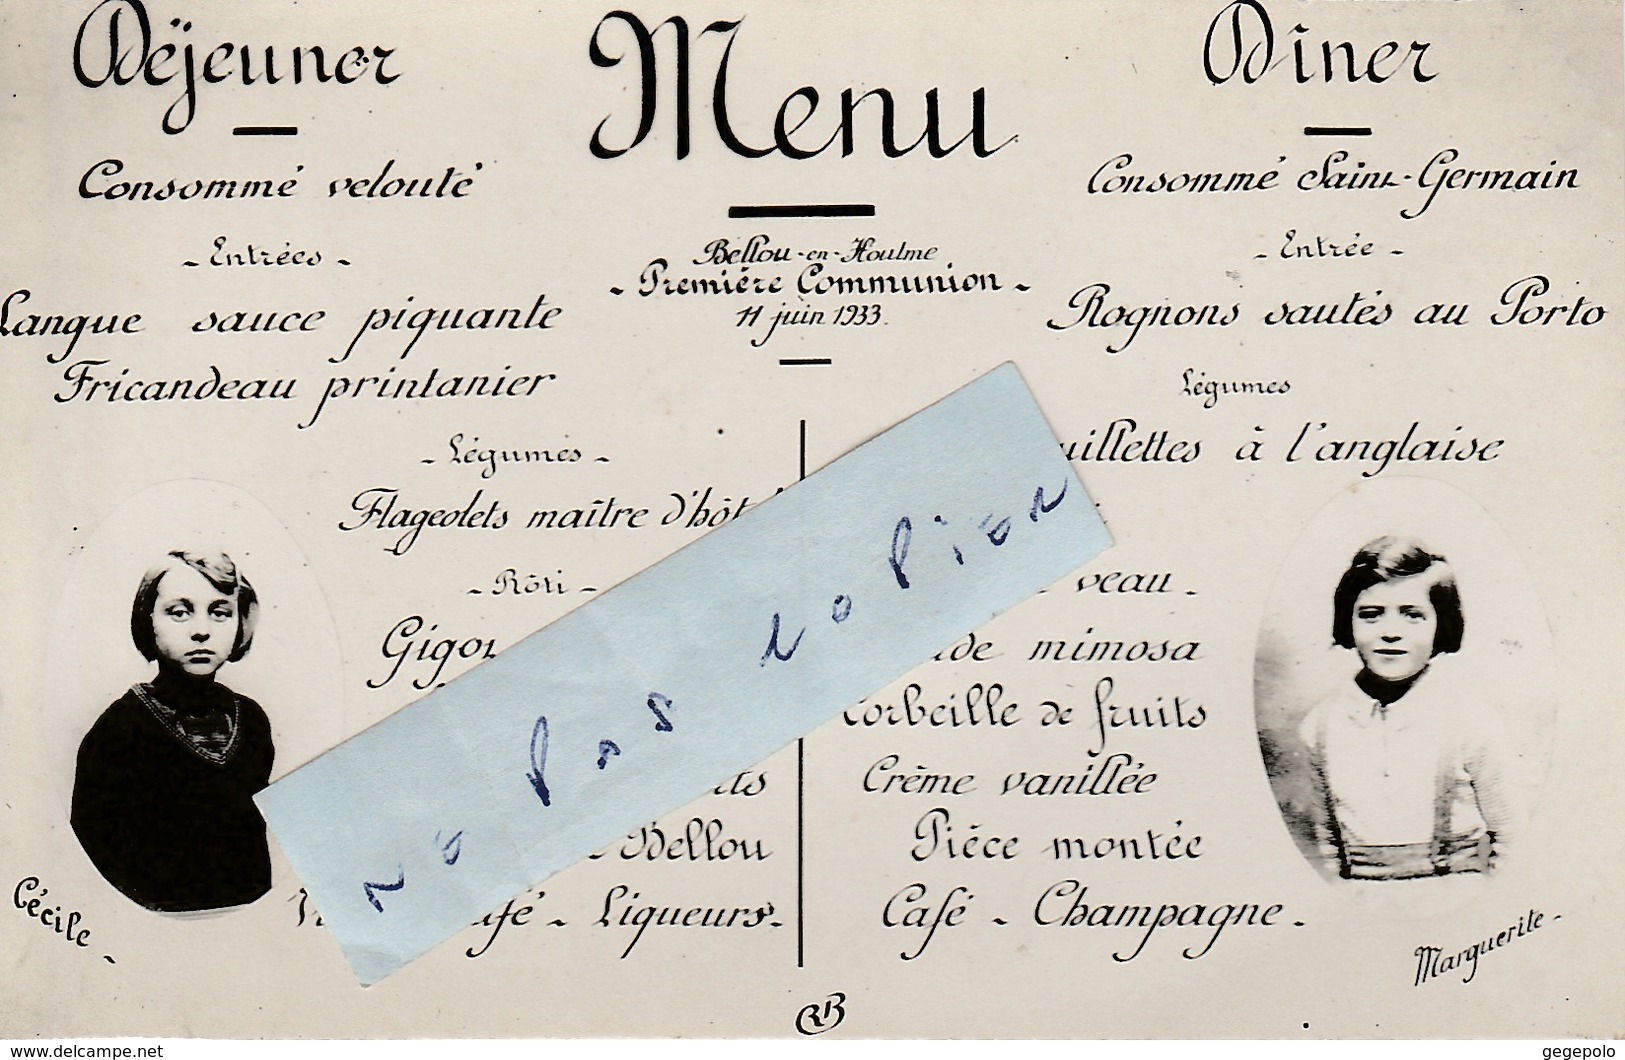 Déjeuner
Consommé velouté
- Entrées -
Langue sauce piquante
Fricandeau printanier
- Légumes -
Flageolets maître d'hôt
- Rôti -
Gigot
its
Bellou
afé - Liqueurs -
Cécile -
Menu
Bellou-en-Houlme
- Première Communion -
11 juin 1933.
Dîner
Consommé Saint-Germain
- Entrée -
Rognons sautés au Porto
Légumes
uillettes à l'anglaise
veau -
ade mimosa
Corbeille de fruits
Crème vanillée
Pièce montée
Café - Champagne -
Marguerite -
RB
Ne pas copier
www.delcampe.net
gegepolo